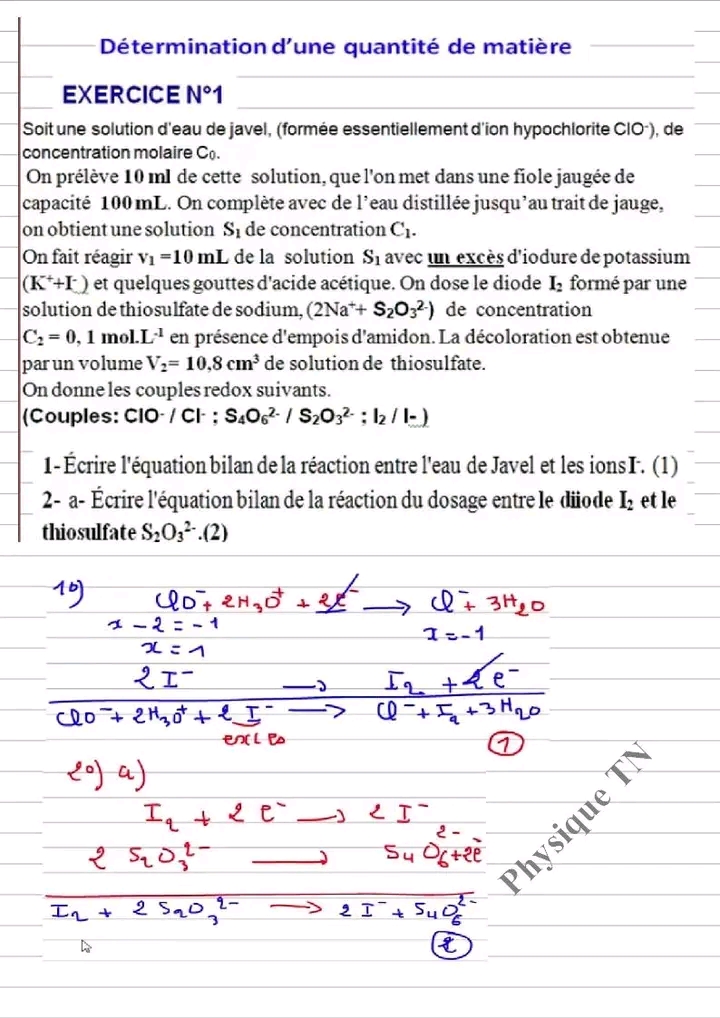 Détermination d'une quantité de matière
EXERCICE N°1
Soit une solution d'eau de javel, (formée essentiellement d'ion hypochlorite ClO⁻), de
concentration molaire C₀.
On prélève 10 ml de cette solution, que l'on met dans une fiole jaugée de
capacité 100 mL. On complète avec de l'eau distillée jusqu'au trait de jauge,
on obtient une solution S₁ de concentration C₁.
On fait réagir v₁ =10 mL de la solution S₁ avec un excès d'iodure de potassium
(K⁺+I⁻) et quelques gouttes d'acide acétique. On dose le diode I₂ formé par une
solution de thiosulfate de sodium, (2Na⁺+ S₂O₃²⁻) de concentration
C₂ = 0, 1 mol.L⁻¹ en présence d'empois d'amidon. La décoloration est obtenue
par un volume V₂= 10,8 cm³ de solution de thiosulfate.
On donne les couples redox suivants.
(Couples: ClO⁻ / Cl⁻ ; S₄O₆²⁻ / S₂O₃²⁻ ; I₂ / I- )
1- Écrire l'équation bilan de la réaction entre l'eau de Javel et les ions I⁻. (1)
2- a- Écrire l'équation bilan de la réaction du dosage entre le diiode I₂ et le
thiosulfate S₂O₃²⁻.(2)
1°) ClO⁻ + 2H₃O⁺ + 2e⁻ → Cl⁻ + 3H₂O
x - 2 = -1 x = -1
x = 1
2 I⁻ → I₂ + 2 e⁻
ClO⁻ + 2H₃O⁺ + 2 I⁻ → Cl⁻ + I₂ + 3H₂O
excès 1
2°) a)
I₂ + 2 e⁻ → 2 I⁻
2 S₂O₃²⁻ → S₄O₆²⁻ + 2e⁻
I₂ + 2 S₂O₃²⁻ → 2 I⁻ + S₄O₆²⁻
2
Physique TN